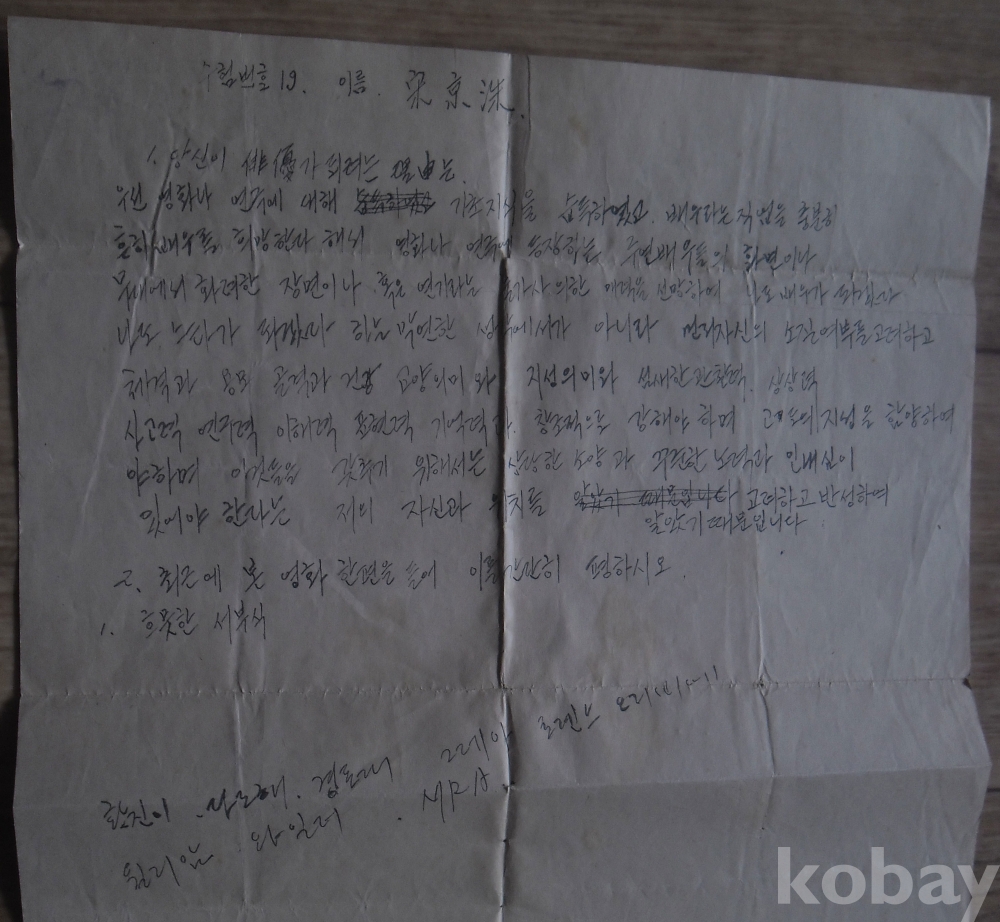 수험번호 19. 이름. 梁京洙.
1. 당신이 俳優가 되려는 理由는.
우선 영화나 연극에 대해 기초지식을 습득하였고. 배우라는 직업을 충분히
배우를 희망한다 해서 영화나 연극에 등장하는 주연배우들의 화면이나
무대에서 화려한 장면이나 혹은 연기라는 의한 매력을 선망하여 나도 배우가 되겠다
나도 되겠다 하는 막연한 생각에서가 아니라 먼저자신의 소질여부를고려하고
체격과 용모 골격과 건강 교양의미와 지성의미와 섬세한관찰력. 상상력
사고력 연기력 이해력 표현력 기억력과. 창조적으로 강해야 하며 고도의지성을 함양하여
야하며 이것들을 갖추기 위해서는 상당한 소양과 꾸준한 노력과 인내심이
있어야 한다는 저의 자신과 위치를 고려하고반성하여
알았기때문입니다
2. 최근에 본 영화 한편을 들어 이를간단히 평하시오.
1. 흐뭇한 서부식
황진이. 그레이 로렌스 오리비에
윌리암 와일러. MRA.
kobay